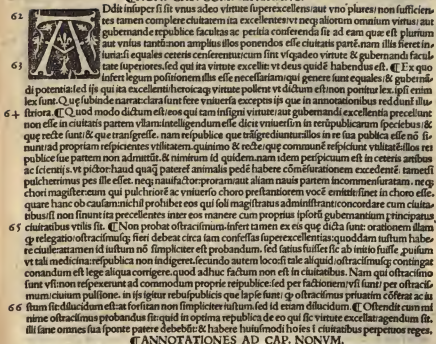 62 Ddit insuper si sit vnus adeo virtute superexcellens/aut vno plures/non sufficien
tes tamen complere ciuitatem ita excellentes/vt neque aliorum omnium virtus/aut
gubernande reipublice facultas ac peritia conferenda sit ad eam que est plurium
aut vnius tantū:non amplius illos ponendos esse ciuitatis partē.nam illis fieret in-
iuria:si equales ceteris censerentur:cum sint vsquadeo virtute & gubernandi facul-
63 tate superiores.sed qui ita virtute excellit vt deus quidē habendus est. ¶ Et quo
infert legum positionem illis esse necessariam:qui genere sunt equales/& gubernā-
di potentia:sed ijs qui ita excellenti/heroicaq; virtute pollent vt dictum est:non ponitur lex.ipsi enim
lex sunt.
64 ¶ Quod modo dictum est:eos qui tam insigni virtute/aut gubernandi excellentia precellunt
non esse in ciuitatis partem
que recte sunt:& que transgresse. nam reipublice que
nunt:ad propriam respicientes vtilitatem.quinimo & recte:que communē respiciunt vtilitatē:illos res
publice sue partem non admittūt.& nimirum id quidem.nam idem perspicuum est in ceteris artibus
ac scientijs. vt pictor haud quaq pateret animalis pedē habere cōmēsurationem excedentē: tametsi
pulcherrimus pes ille esset. neq; naufactor:proram
chori magister:eum qui pulchrioré ac viuaciorē choro prestantiorem vocē emittit:sinet in choro esse.
quare hanc ob causam:nichil prohibet eos qui soli magistratus administrant:concordare cum ciuita-
tibus/si non sinunt ita precellentes inter eos manere cum proprius ipsorū gubernantium principatus
65 ciuitatibus vtilis sit. ¶ Non probat ostracismum.infert tamen ex eis que dicta sunt: orationem illam
q relegatio:ostracismusq; fieri debeat circa iam confessas superexcellentias:quoddam iustum habe-
re ciuile:attamen id iustum nō simpliciter est probandum. sed satius fuisset sic ab initio fuisse positum
vt tali medicina:respublica non indigeret.secundo autem loco:si tale aliquid/ostracismusq; contingat
conandum est lege aliqua corrigere.quod adhuc factum non est in ciuitatibus. Nam qui ostracismo
sunt vsi:non respexerunt ad commodum proprie reipublice.sed per factionem/vsi sunt/per ostracis-
mum/ciuium pulsione. in ijs igitur rebuspublicis que lapse sunt: q ostracismus priuatim cōferat ac iu
66 stum sit:dilucidum est:at forsitan non simpliciter iustum.sed id etiam dilucidum. ¶ Ostendit cum mi
nime ostracismus probandus sit:quid in optima republica de eo qui sic virtute excellat:agendum sit.
illi sane omnes sua sponte parere debebūt:& habere huiusmodi hoies i ciuitatibus perpetuos reges,
¶ANNOTATIONES AD CAP. NONVM.